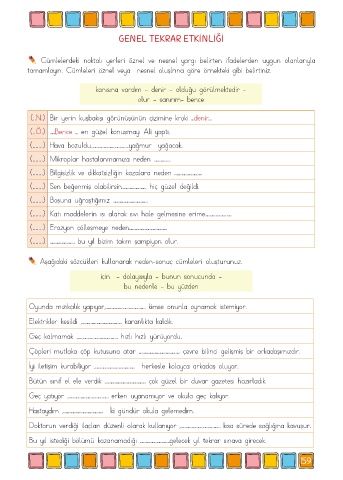 GENEL TEKRAR ETKİNLİĞİ
Cümlelerdeki noktalı yerleri öznel ve nesnel yargı belirten ifadelerden uygun olanlarıyla
tamamlayın. Cümleleri öznel veya nesnel oluşlarına göre örnekteki gibi belirtiniz.
kanısına vardım - denir - olduğu görülmektedir -
olur - sanırım- bence
(..N..) Bir yerin kuşbakışı görünüşünün çizimine kroki ..denir...
(..Ö..) ...Bence .. en güzel konuşmayı Ali yaptı.
(........) Hava bozuldu,........................yağmur yağacak.
(........) Mikroplar hastalanmamıza neden ............
(........) Bilgisizlik ve dikkatsizliğin kazalara neden ....................
(........) Sen beğenmiş olabilirsin,.................. hiç güzel değildi.
(........) Boşuna uğraştığımız ........................
(........) Katı maddelerin ısı alarak sıvı hale gelmesine erime..................
(........) Erozyon çölleşmeye neden.........................
(........) .................. bu yıl bizim takım şampiyon olur.
Aşağıdaki sözcükleri kullanarak neden-sonuç cümleleri oluşturunuz.
için - dolayısıyla - bunun sonucunda -
bu nedenle - bu yüzden
Oyunda mızıkçılık yapıyor,........................ kimse onunla oynamak istemiyor.
Elektrikler kesildi ........................ karanlıkta kaldık.
Geç kalmamak ........................ hızlı hızlı yürüyordu.
Çöpleri mutlaka çöp kutusuna atar ........................ çevre bilinci gelişmiş bir arkadaşımızdır.
İyi iletişim kurabiliyor ........................ herkesle kolayca arkadaş oluyor.
Bütün sınıf el ele verdik ........................ çok güzel bir duvar gazetesi hazırladık.
Geç yatıyor ........................ erken uyanamıyor ve okula geç kalıyor.
Hastaydım ........................ iki gündür okula gelemedim.
Doktorun verdiği ilaçları düzenli olarak kullanıyor ........................ kısa sürede sağlığına kavuşur.
Bu yıl istediği bölümü kazanamadığı ..................gelecek yıl tekrar sınava girecek.
59